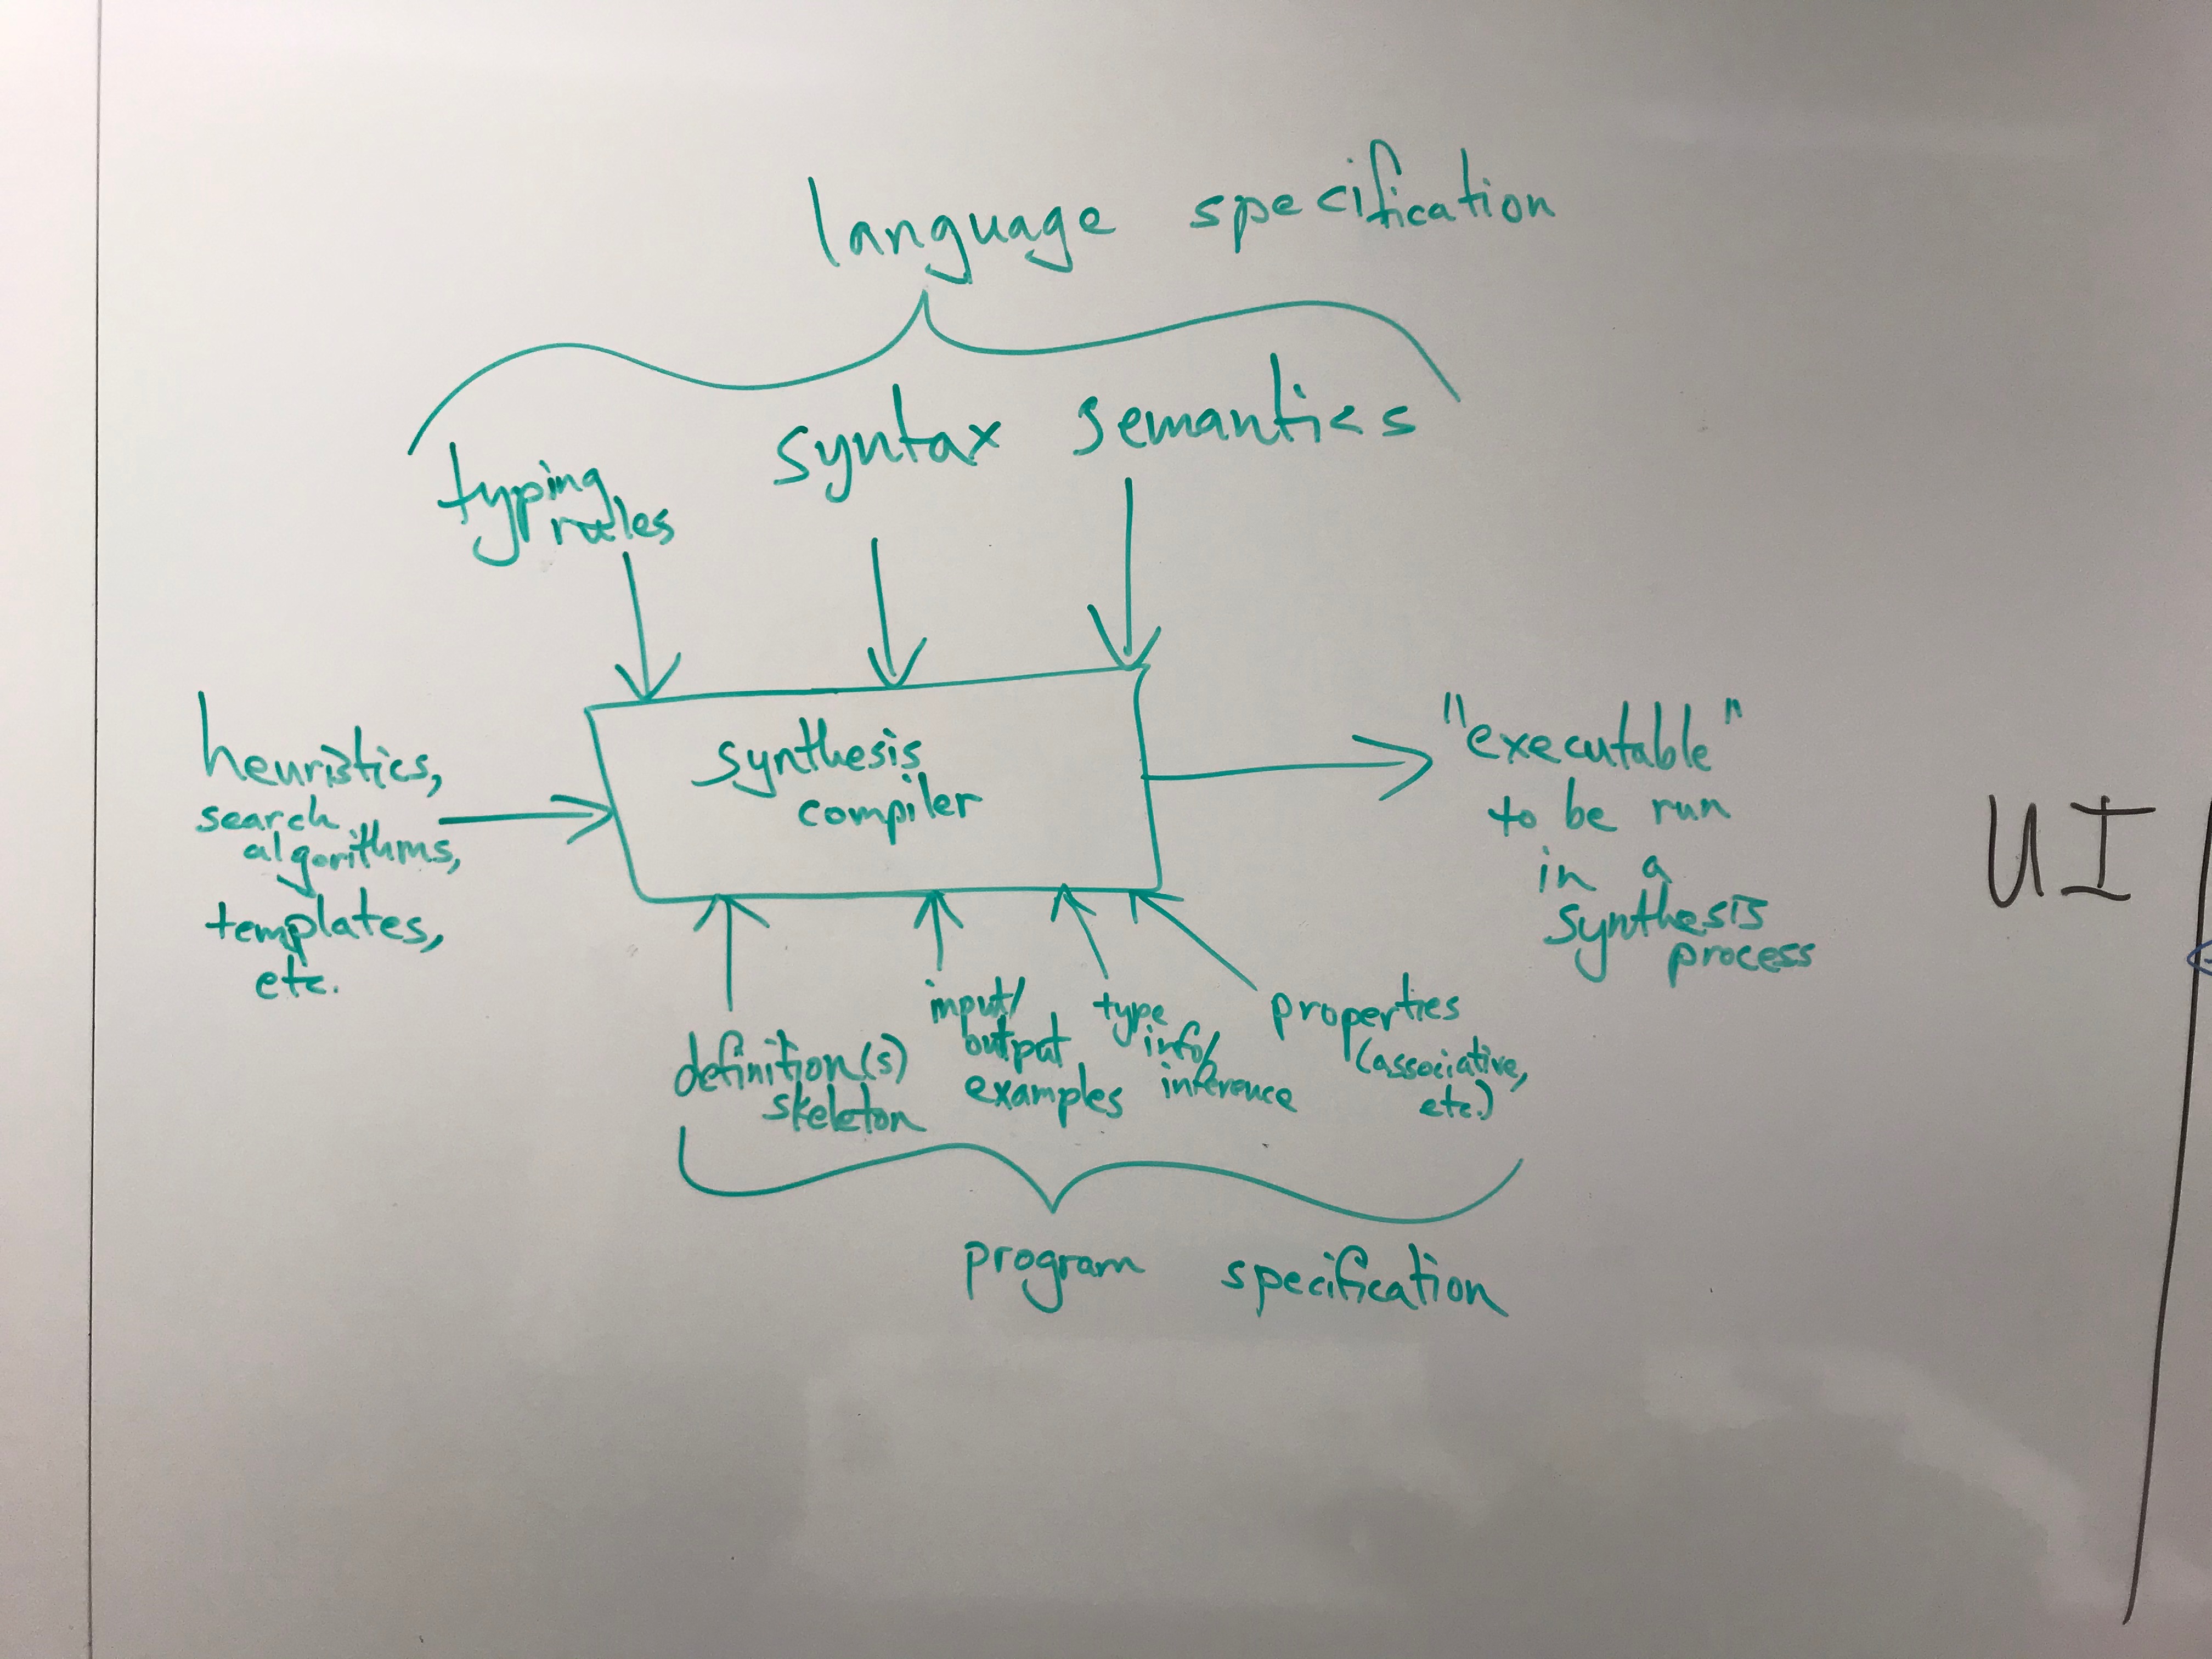 language specification
typing
rules
syntax
semantics
heuristics,
search
algorithms,
templates,
etc.
synthesis
compiler
"executable"
to be run
in a
synthesis
process
UI
definition(s)
skeleton
input/
output
examples
type
info/
inference
properties
(associative,
etc.)
program specification